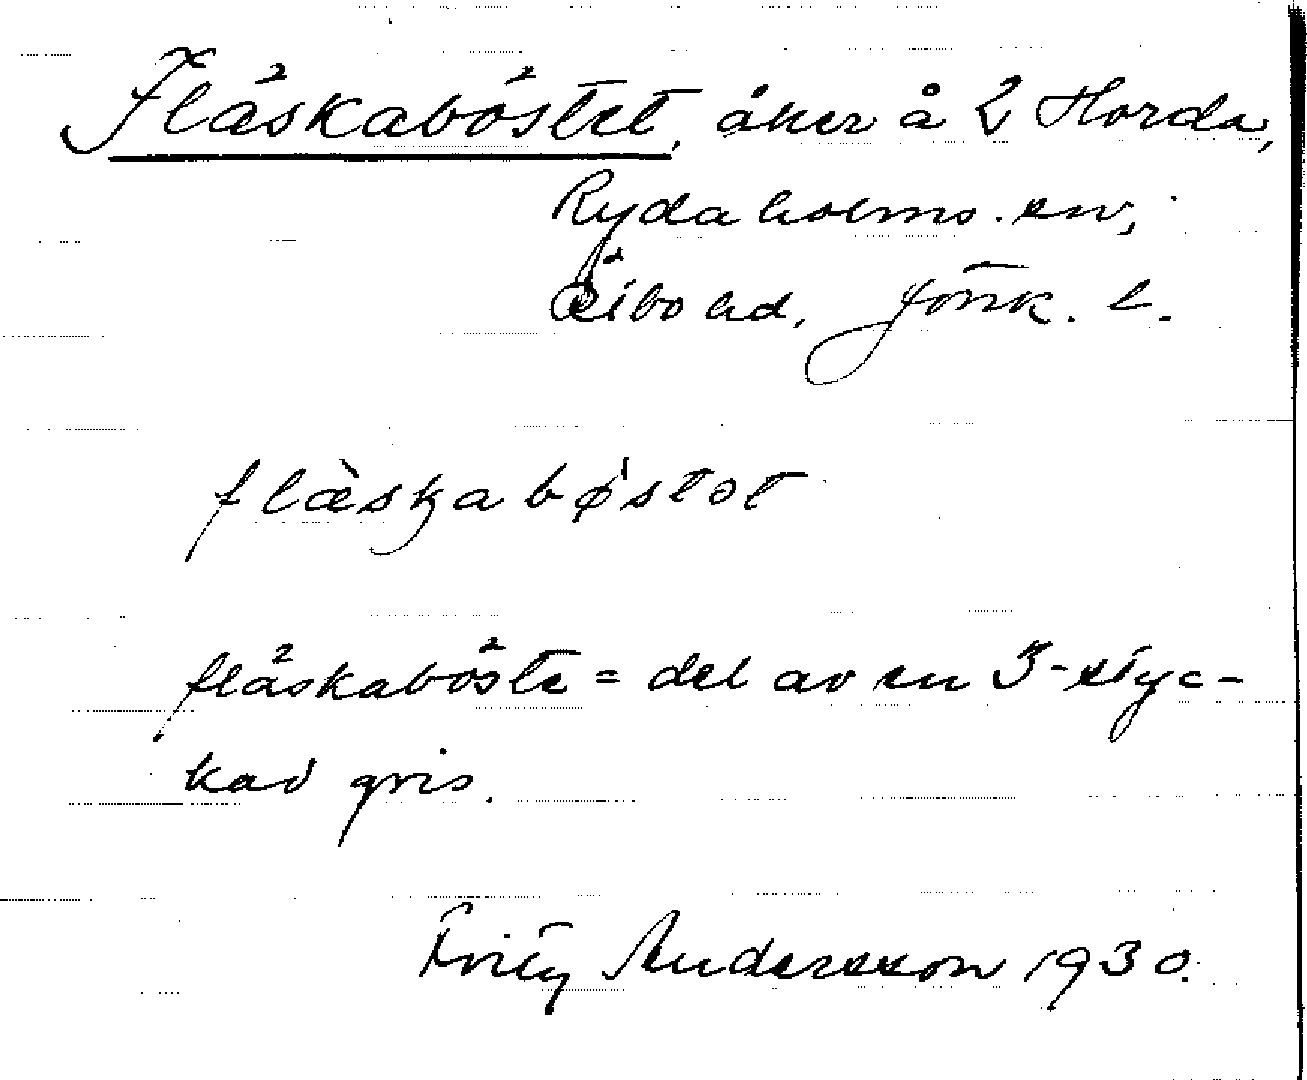 Fläskaböstet, åker å 2 Horda,
Rydaholms sn,
Östbo hd, Jönk. l.
flæ̀skabǿstət
fläskaböste = del av en 3-styc-
kad gris.
Frity Andersson 1930.